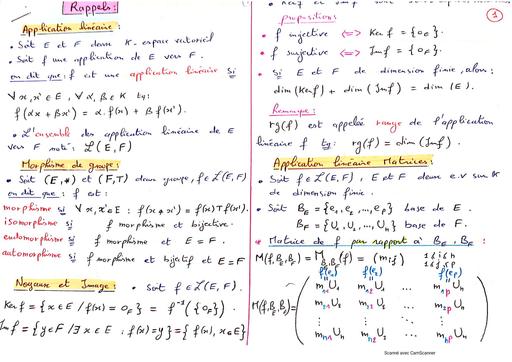 Rappels :
Application linéaire :
• Soit E et F deux K. espace vectoriel
• Soit f une application de E vers F.
on dit que : f est une application linéaire si
∀ x, x' ∈ E, ∀ α, β ∈ K tq :
f(αx + βx') = α.f(x) + β.f(x').
• L'ensemble des application linéaire de E
vers F noté : L(E, F)
Morphisme de groupe :
• Soit (E, *) et (F, T) deux groupe, f ∈ L(E, F)
on dit que : f est :
morphisme si ∀ x, x' ∈ E : f(x * x') = f(x) T f(x').
isomorphisme si f morphisme et bijective.
endomorphisme si f morphisme et E = F.
automorphisme si f morphisme et bijectif et E = F
Noyaux et Image : • soit f ∈ L(E, F).
Ker f = {x ∈ E / f(x) = 0F} = f⁻¹({0F}).
Imf = {y ∈ F / ∃ x ∈ E : f(x) = y} = {f(x), x ∈ E}
1
propositions
• f injective <=> Ker f = {0E}.
• f surjective <=> Imf = {0F}.
• Si E et F de dimension finie, alors :
dim(Kerf) + dim(Imf) = dim(E).
Remarque :
rg(f) est appelée range de l'application
linéaire f tq : rg(f) = dim(Imf).
Application linéaire Matrices :
• Soit f ∈ L(E, F), E et F deux e.v sur K
de dimension finie.
• Soit BE = {e1, e2, ..., ep} base de E.
BF = {U1, U2, ..., Un} base de F.
* Matrice de f par rapport à BE, BF :
M(f, BE, BF) = M BE, BF (f) = (mij) 1≤i≤n 1≤j≤p
f(e1) f(e2) f(ep)
m11U1 m12U1 ... m1pU1
M(f, BE, BF) = m21U2 m22U2 ... m2pU2
⋮ ⋮ ⋮
mn1Un mn2Un ... mnpUn
Scanné avec CamScanner